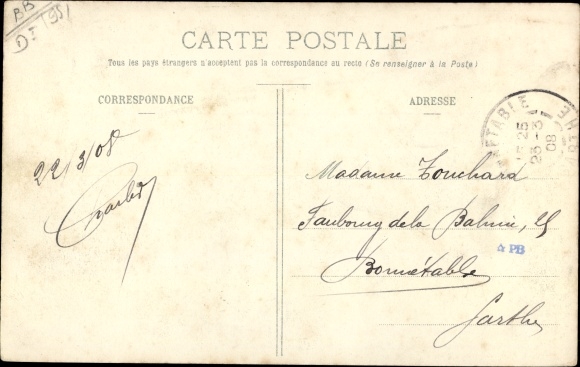 BB
CARTE POSTALE
Tous les pays étrangers n'acceptent pas la correspondance au recto (Se renseigner à la Poste)
CORRESPONDANCE
ADRESSE
22/3/08
Madame Touchard
Faubourg de la Balnie, 25
Bonnétable
Sarthe
15 25
23 - 3
08
PB